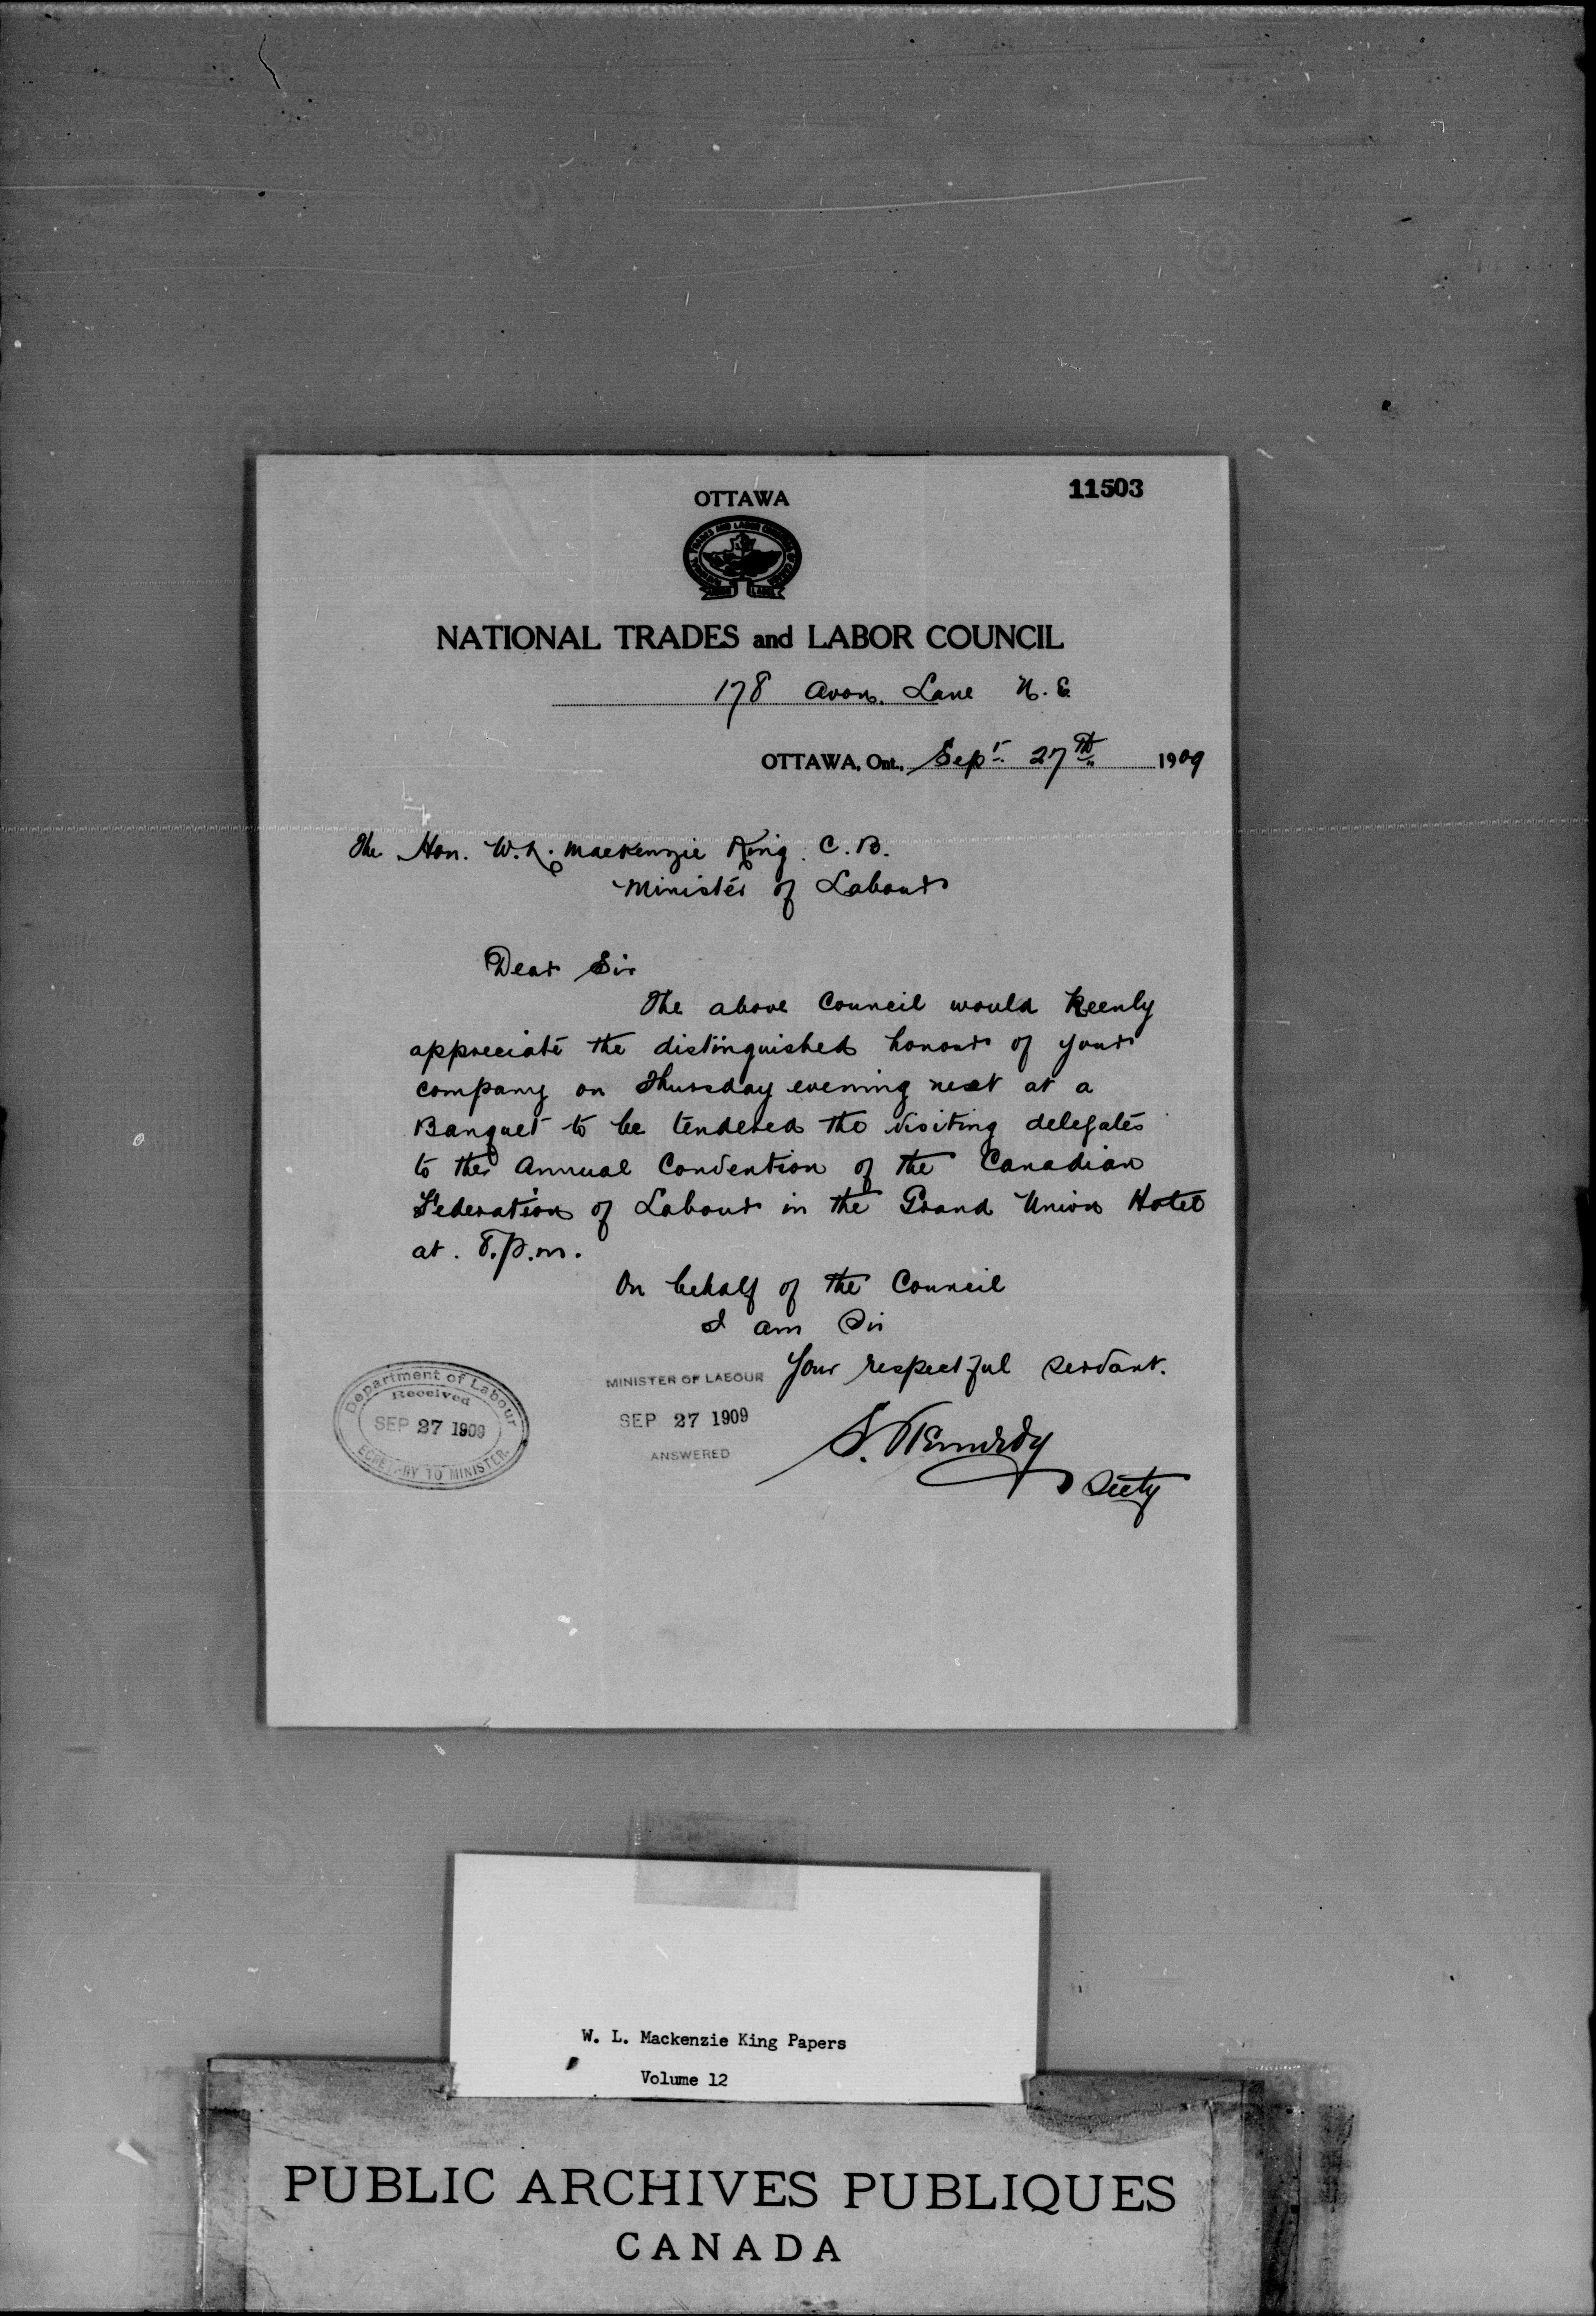 11503
OTTAWA
NATIONAL TRADES and LABOR COUNCIL
178 Avon. Lane N. E
OTTAWA, Ont., Sept. 27th 1909
The Hon. W. L. Mackenzie King. C. B.
Minister of Labour
Dear Sir
The above Council would keenly
appreciate the distinguished honour of your
company on Thursday evening next at a
Banquet to be tendered the visiting delegates
to the Annual Convention of the Canadian
Federation of Labour in the Grand Union Hotel
at. 8. p. m.
On behalf of the Council
I am Sir
Your respectful servant.
S. Kennedy
Secty
Department of Labour
Received
SEP 27 1909
SECRETARY TO MINISTER
MINISTER OF LABOUR
SEP 27 1909
ANSWERED
W. L. Mackenzie King Papers
Volume 12
PUBLIC ARCHIVES PUBLIQUES
CANADA